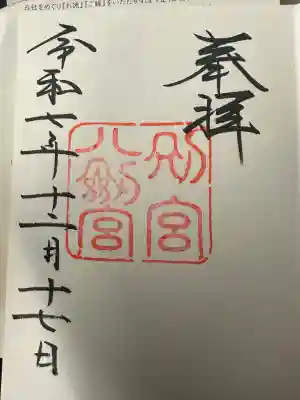 奉拝
別宮
八剣宮
令和七年十二月十七日